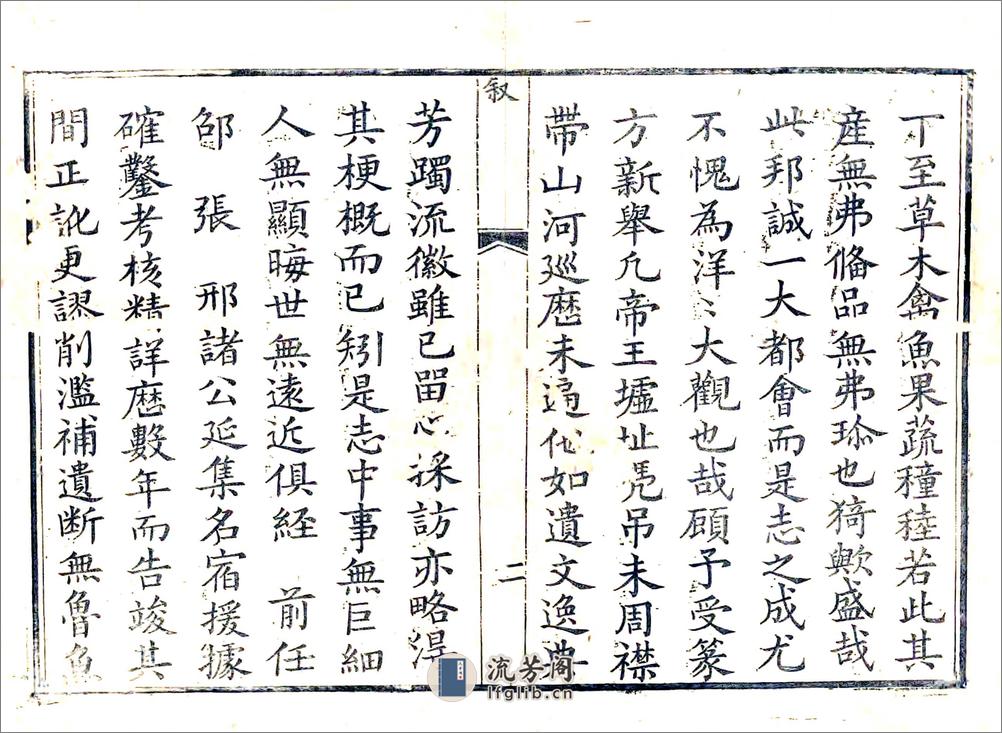 丅至草木禽魚果蔬穜稑若此其
産無弗俻品無弗珎也猗歟盛哉
此邦誠一大都會而是志之成尤
不愧為洋〻大觀也哉顧予受篆
方新舉凢帝王墟址凭吊未周襟
帶山河廵歴未遍他如遺文逸典
叙
二
芳躅流徽雖已留心採訪亦略淂
其梗概而已矧是志中事無巨細
人無顯晦世無遠近俱経 前任
郃 張 邢諸公延集名宿援據
確鑿考核精詳歴數年而告竣其
間正訛更謬削濫補遺断無魯魚
流芳阁
lfglib.cn